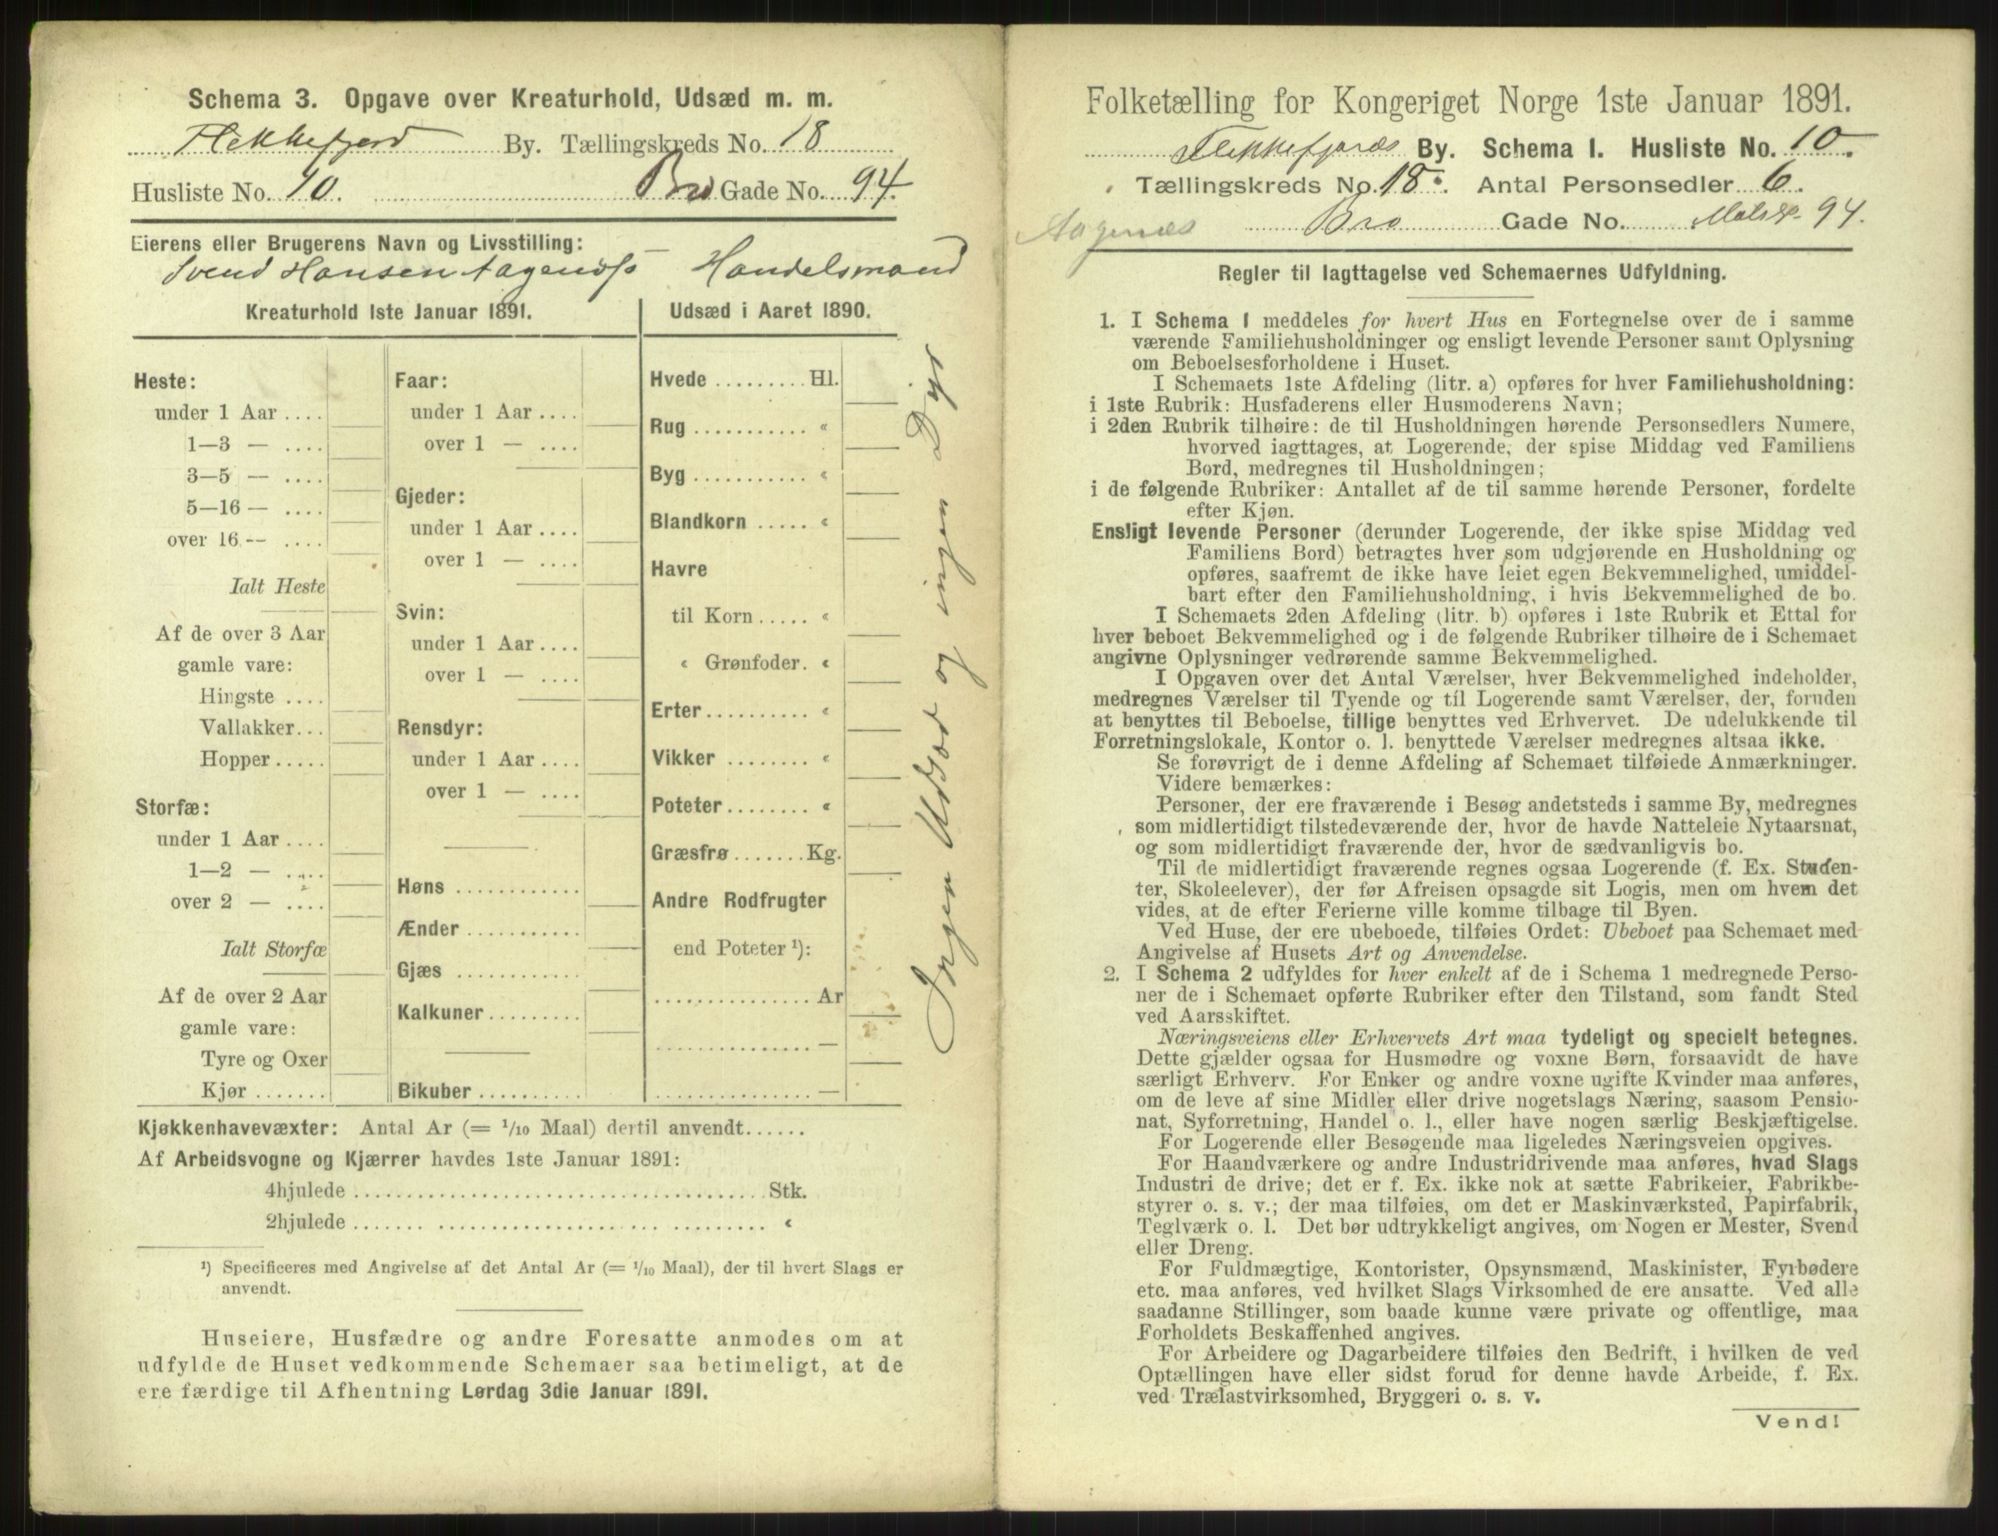 Schema 3. Opgave over Kreaturhold, Udsæd m. m.
Flekkefjord By. Tællingskreds No. 18
Husliste No. 10. Bro Gade No. 94.
Eierens eller Brugerens Navn og Livsstilling:
Svend Hansen Aagenæs Handelsmand
Kreaturhold 1ste Januar 1891.
Heste:
under 1 Aar ....
1—3 — ....
3—5 — ....
5—16 — ....
over 16 — ....
Ialt Heste
Af de over 3 Aar
gamle vare:
Hingste ....
Vallakker...
Hopper .....
Storfæ:
under 1 Aar ....
1—2 — ....
over 2 — ....
Ialt Storfæ
Af de over 2 Aar
gamle vare:
Tyre og Oxer
Kjør .......
Faar:
under 1 Aar ....
over 1 — ....
Gjeder:
under 1 Aar ....
over 1 — ....
Svin:
under 1 Aar ....
over 1 — ....
Rensdyr:
under 1 Aar ....
over 1 — ....
Høns ...........
Ænder ..........
Gjæs ...........
Kalkuner ........
Bikuber ..........
Udsæd i Aaret 1890.
Hvede ......... Hl.
Rug ........... «
Byg ........... «
Blandkorn ..... «
Havre
til Korn ..... «
« Grønfoder. «
Erter .......... «
Vikker ........ «
Poteter ........ «
Græsfrø ....... Kg.
Andre Rodfrugter
end Poteter ¹):
............... Ar
............... —
............... —
Ingen Udsæd og ingen Dyr
Kjøkkenhavevæxter: Antal Ar (= 1/10 Maal) dertil anvendt......
Af Arbeidsvogne og Kjærrer havdes 1ste Januar 1891:
4hjulede ........................................ Stk.
2hjulede ........................................ «
¹) Specificeres med Angivelse af det Antal Ar (= 1/10 Maal), der til hvert Slags er
anvendt.
Huseiere, Husfædre og andre Foresatte anmodes om at
udfylde de Huset vedkommende Schemaer saa betimeligt, at de
ere færdige til Afhentning Lørdag 3die Januar 1891.
Folketælling for Kongeriget Norge 1ste Januar 1891.
Flekkefjords By. Schema I. Husliste No. 10.
Tællingskreds No. 18. Antal Personsedler 6.
Aagenæs Bro Gade No. 94.
Regler til Iagttagelse ved Schemaernes Udfyldning.
1. I Schema 1 meddeles for hvert Hus en Fortegnelse over de i samme
værende Familiehusholdninger og ensligt levende Personer samt Oplysning
om Beboelsesforholdene i Huset.
I Schemaets 1ste Afdeling (litr. a) opføres for hver Familiehusholdning:
i 1ste Rubrik: Husfaderens eller Husmoderens Navn;
i 2den Rubrik tilhøire: de til Husholdningen hørende Personsedlers Numere,
hvorved iagttages, at Logerende, der spise Middag ved Familiens
Bord, medregnes til Husholdningen;
i de følgende Rubriker: Antallet af de til samme hørende Personer, fordelte
efter Kjøn.
Ensligt levende Personer (derunder Logerende, der ikke spise Middag ved
Familiens Bord) betragtes hver som udgjørende en Husholdning og
opføres, saafremt de ikke have leiet egen Bekvemmelighed, umiddel-
bart efter den Familiehusholdning, i hvis Bekvemmelighed de bo.
I Schemaets 2den Afdeling (litr. b) opføres i 1ste Rubrik et Ettal for
hver beboet Bekvemmelighed og i de følgende Rubriker tilhøire de i Schemaet
angivne Oplysninger vedrørende samme Bekvemmelighed.
I Opgaven over det Antal Værelser, hver Bekvemmelighed indeholder,
medregnes Værelser til Tyende og til Logerende samt Værelser, der, foruden
at benyttes til Beboelse, tillige benyttes ved Erhvervet. De udelukkende til
Forretningslokale, Kontor o. l. benyttede Værelser medregnes altsaa ikke.
Se forøvrigt de i denne Afdeling af Schemaet tilføiede Anmærkninger.
Videre bemærkes:
Personer, der ere fraværende i Besøg andetsteds i samme By, medregnes
som midlertidigt tilstedeværende der, hvor de havde Natteleie Nytaarsnat,
og som midlertidigt fraværende der, hvor de sædvanligvis bo.
Til de midlertidigt fraværende regnes ogsaa Logerende (f. Ex. Studen-
ter, Skoleelever), der før Afreisen opsagde sit Logis, men om hvem det
vides, at de efter Ferierne ville komme tilbage til Byen.
Ved Huse, der ere ubeboede, tilføies Ordet: Ubeboet paa Schemaet med
Angivelse af Husets Art og Anvendelse.
2. I Schema 2 udfyldes for hver enkelt af de i Schema 1 medregnede Perso-
ner de i Schemaet opførte Rubriker efter den Tilstand, som fandt Sted
ved Aarsskiftet.
Næringsveiens eller Erhvervets Art maa tydeligt og specielt betegnes.
Dette gjælder ogsaa for Husmødre og voxne Børn, forsaavidt de have
særligt Erhverv. For Enker og andre voxne ugifte Kvinder maa anføres,
om de leve af sine Midler eller drive nogetslags Næring, saasom Pensio-
nat, Syforretning, Handel o. l., eller have nogen særlig Beskjæftigelse.
For Logerende eller Besøgende maa ligeledes Næringsveien opgives.
For Haandværkere og andre Industridrivende maa anføres, hvad Slags
Industri de drive; det er f. Ex. ikke nok at sætte Fabrikeier, Fabrikbe-
styrer o. s. v.; der maa tilføies, om det er Maskinværksted, Papirfabrik,
Teglværk o. l. Det bør udtrykkeligt angives, om Nogen er Mester, Svend
eller Dreng.
For Fuldmægtige, Kontorister, Opsynsmænd, Maskinister, Fyrbødere
etc. maa anføres, ved hvilket Slags Virksomhed de ere ansatte. Ved alle
saadanne Stillinger, som baade kunne være private og offentlige, maa
Forholdets Beskaffenhed angives.
For Arbeidere og Dagarbeidere tilføies den Bedrift, i hvilken de ved
Optællingen have eller sidst forud for denne havde Arbeide, f. Ex.
ved Trælastvirksomhed, Bryggeri o. s. v.
Vend!